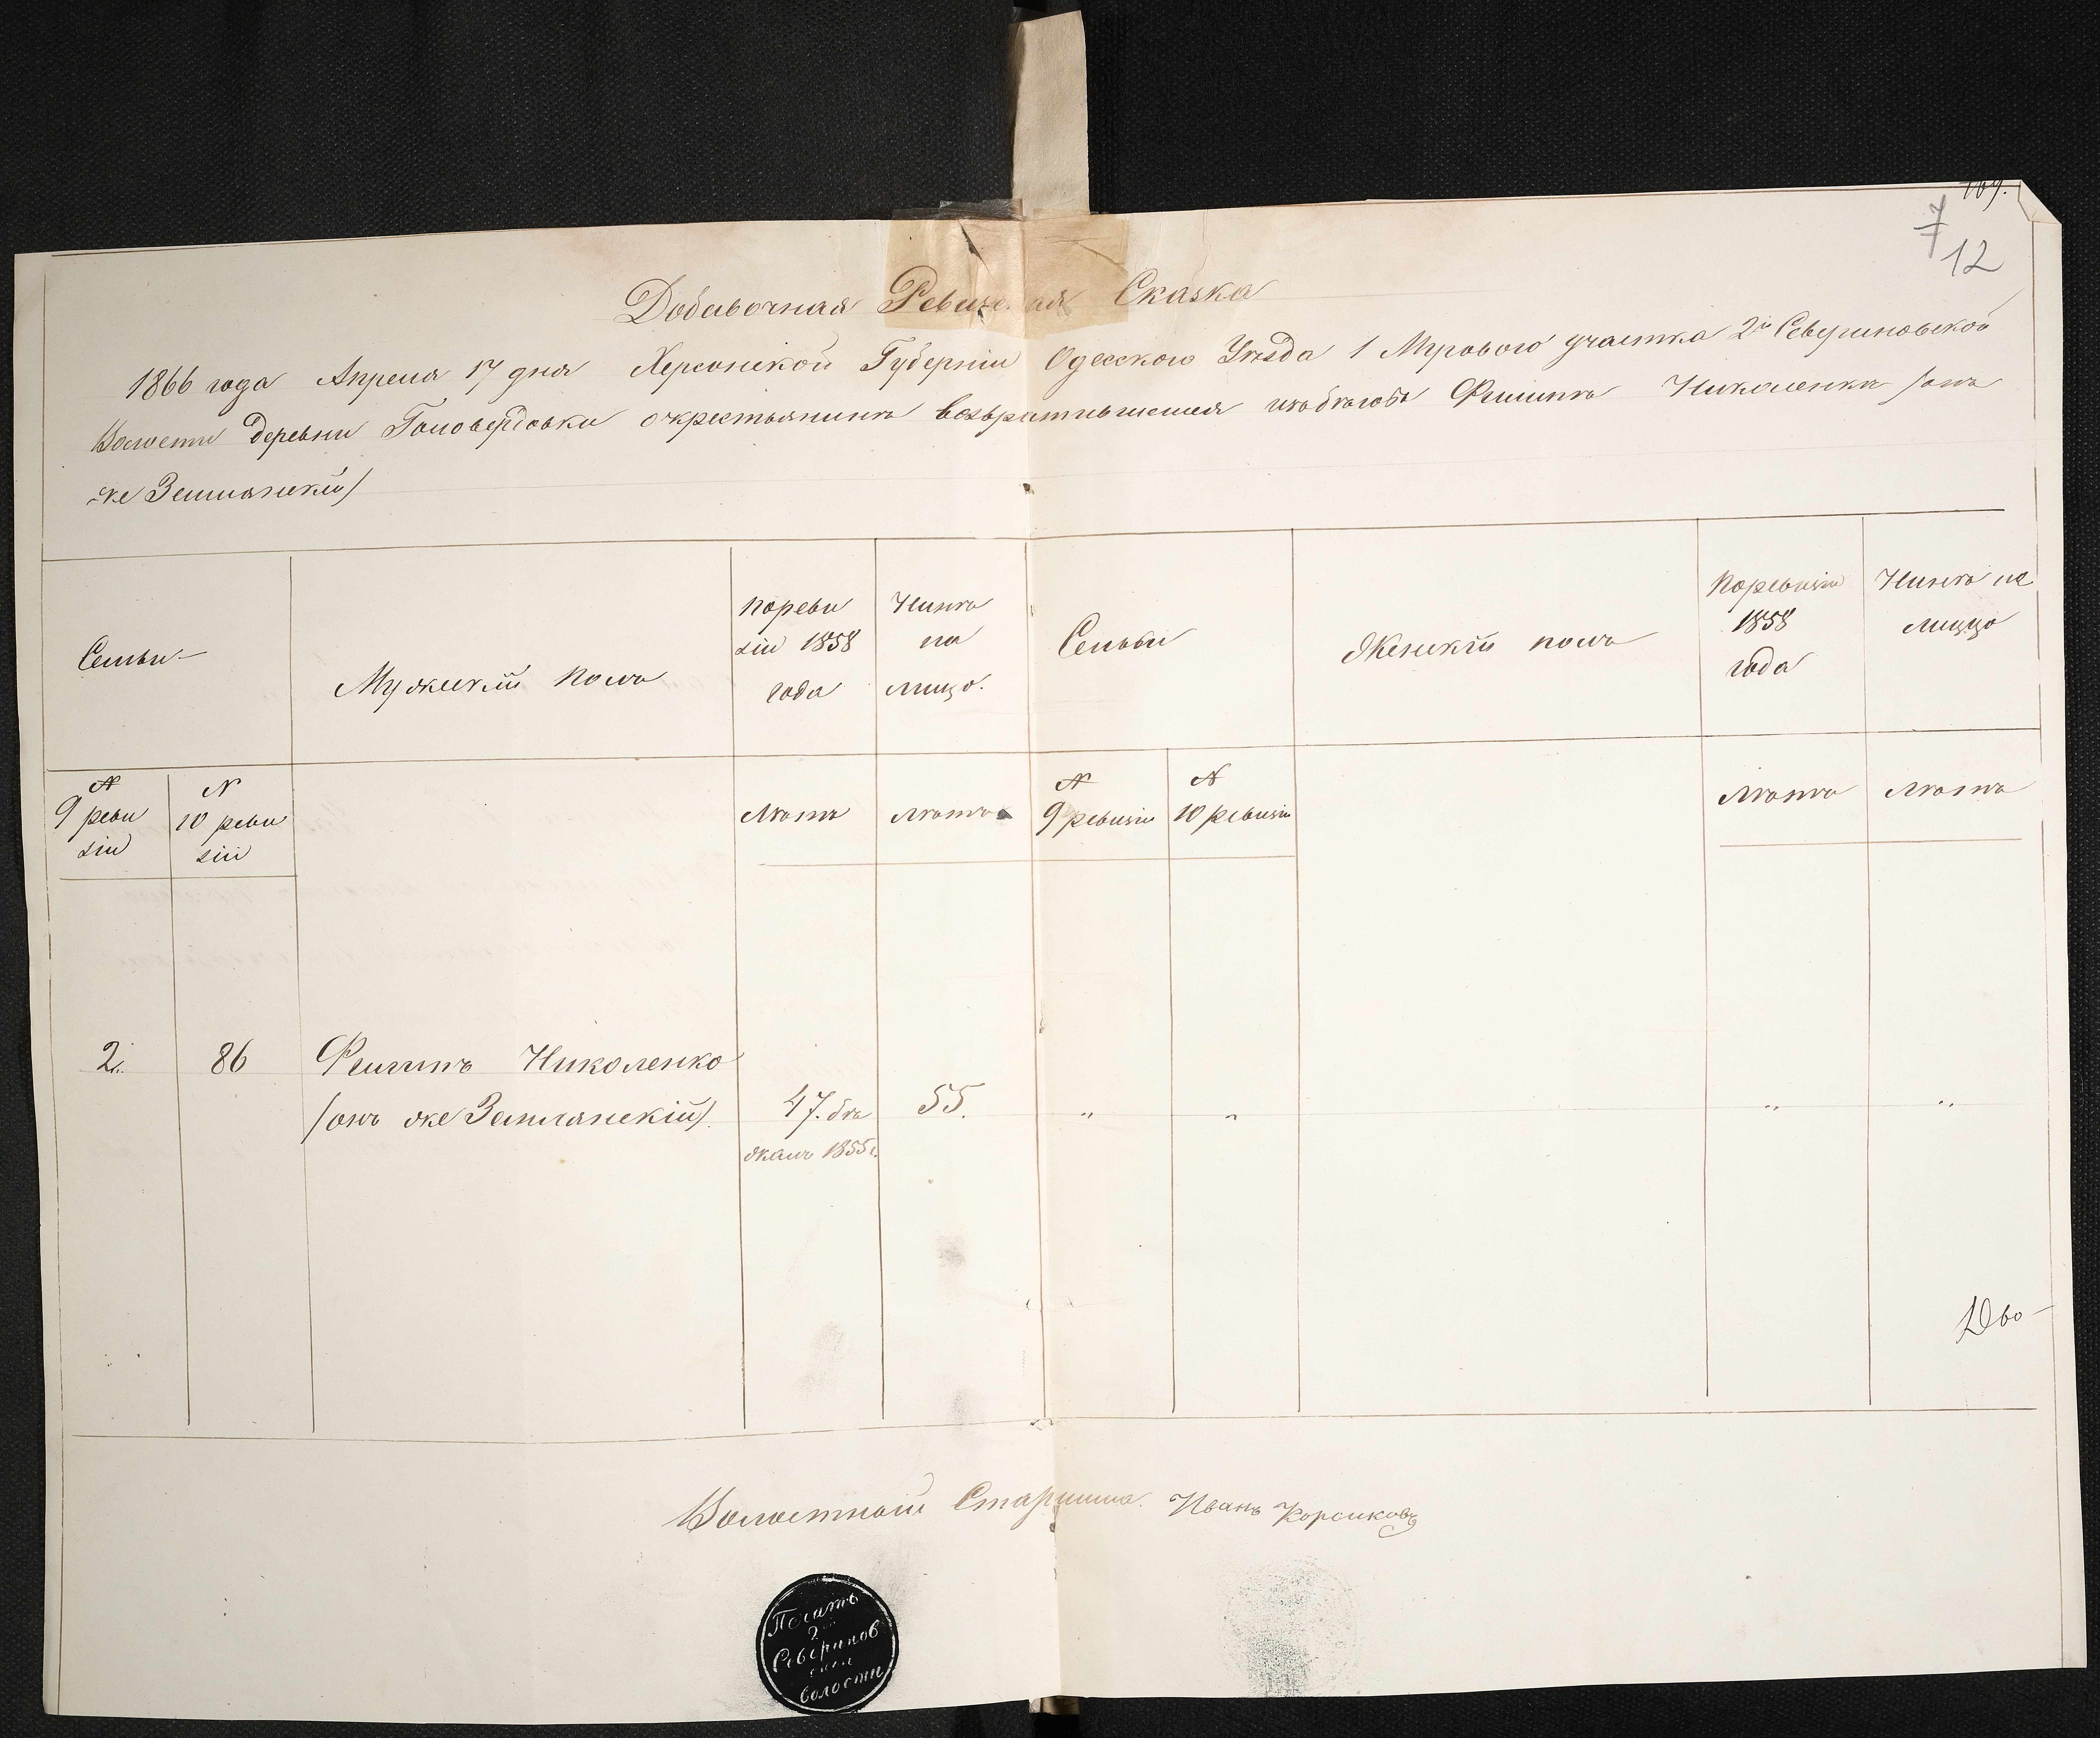 7
12
Добавочная Ревизская Сказка
1866 года Апреля 17 дня Херсонской Губерніи Одесского Уѣзда 1 Мироваго участка 2й Севериновской
Волости деревни окрестьянинѣ возвратившемся изъ бѣговъ Филипѣ Николенкѣ /онъ
же Землянскій/
Семьи Мужескій полъ
пореви
зіи 1858
года
Нынѣ
на
лицо.
Семьи Женскій полъ
поревизіи
1858
года
Нынѣ на
лицо
№
9 реви
зіи
№
10 реви
зіи
Лѣта Лѣта
№
9 ревизіи
№
10 ревизіи
Лѣта Лѣта
2. 86 Филипъ Николенко
/онъ же Землянскій/. 47. бѣ 55. " " " "
жалъ 1855г.
Дво-
Волостной Старшина Иванъ Корсиковъ
Печать
2й
Северинов
ской
волости